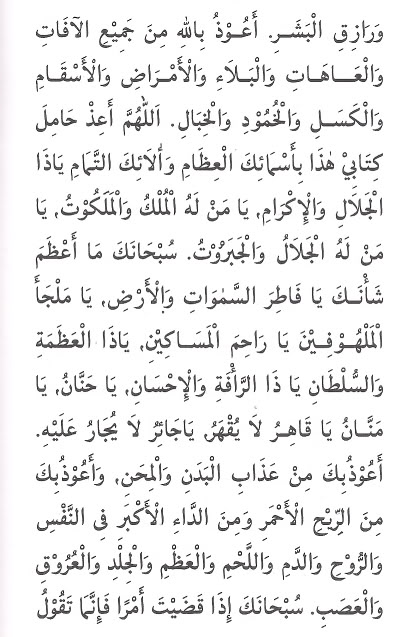 وَرَازِقِ الْبَشَرِ. أَعُوْذُ بِاللهِ مِنَ جَمِيْعِ الآفَاتِ
وَالْعَاهَاتِ وَالْبَلَاءِ وَالْأَمْرَاضِ وَالْأَسْقَامِ
وَالْكَسَلِ وَالْخُمُوْدِ وَالْخِبَالِ. اَللّٰهُمَّ أَعِذْ حَامِلَ
كِتَابِيْ هٰذَا بِأَسْمَائِكَ الْعِظَامِ وَأٰلَائِكَ التَّمَامِ يَاذَا
الْجَلَالِ وَالْإِكْرَامِ, يَا مَنْ لَهُ الْمُلْكُ وَالْمَلَكُوْتُ, يَا
مَنْ لَهُ الْجَلَالُ وَالْجَبَرُوْتُ. سُبْحَانَكَ مَا أَعْظَمَ
شَأْنَكَ يَا فَاطِرَ السَّمٰوَاتِ وَالْأَرْضِ, يَا مَلْجَأَ
الْمَلْهُوْفِيْنَ يَا رَاحِمَ الْمَسَاكِيْنِ, يَاذَا الْعَظَمَةِ
وَالسُّلْطَانِ يَا ذَا الرَّأْفَةِ وَالْإِحْسَانِ, يَا حَنَّانُ, يَا
مَنَّانُ يَا قَاهِرُ لَا يُقْهَرُ, يَاجَائِرُ لَا يُجَارُ عَلَيْهِ.
أَعُوْذُبِكَ مِنْ عَذَابِ الْبَدَنِ وَالْمِحَنِ, وَأَعُوْذُبِكَ
مِنَ الرِّيْحِ الْأَحْمَرِ وَمِنَ الدَّاءِ الْأَكْبَرِ فِى النَّفْسِ
وَالرُّوْحِ وَالدَّمِ وَاللَّحْمِ وَالْعَظْمِ وَالْجِلْدِ وَالْعُرُوْقِ
وَالْعَصَبِ. سُبْحَانَكَ إِذَا قَضَيْتَ أَمْرًا فَإِنَّمَا تَقُوْلُ